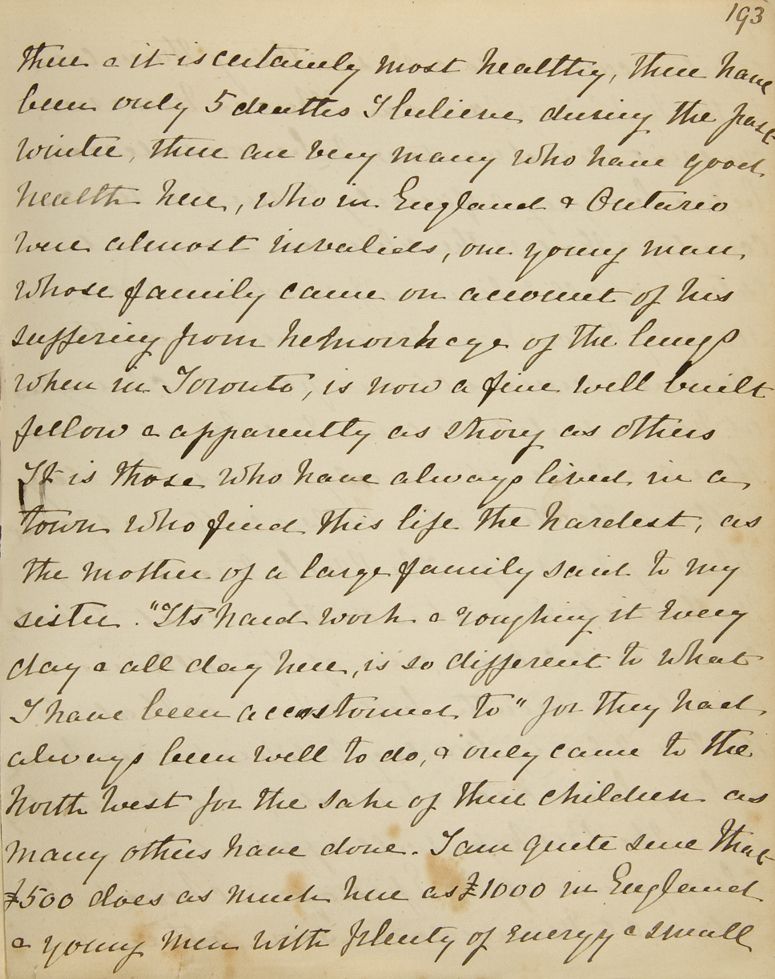 193
there & it is certainly most healthy, there have
been only 5 deaths I believe during the past
winter, there are very many who have good
health here, who in England & Ontario
were almost invalids, one young man,
whose family came on account of his
suffering from hemorrhage of the lungs
when in Toronto, is now a fine well built
fellow & apparently as strong as others
It is those who have always lived in a
town who find this life the hardest, as
the mother of a large family said to my
sister. "Its hard work & roughing it every
day & all day here, is so different to what
I have been accustomed to" for they had
always been well to do, & only came to the
North West for the sake of their children as
many others have done. I am quite sure that
£500 does as much here as £1000 in England
& young men with plenty of energy & small